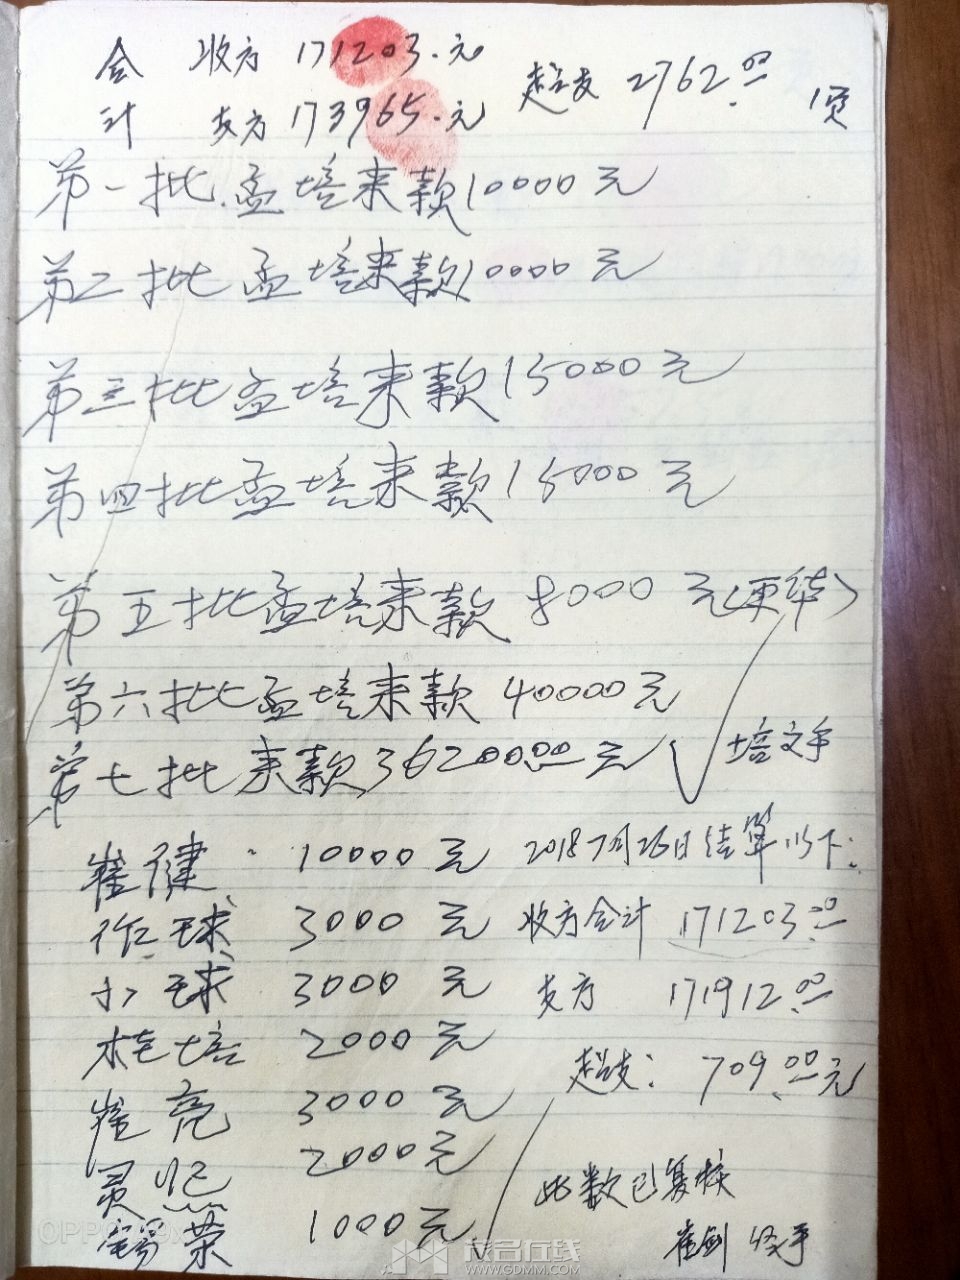 会 收方 171203.元
计 支方 173965.元 超支 2762.00 1页
第一批孟培来款10000元
第二批孟培来款10000元
第三批孟培来款15000元
第四批孟培来款15000元
第五批孟培来款 8000元(更华)
第六批孟培来款 40000元
第七批来款36200.00元 培文手
崔健 10000元 2018 7月26日结算以下:
作球 3000元 收方会计 171203.00
小球 3000元 支方 171912.00
桂培 2000元 超支: 709.00元
崔亮 3000元
灵 2000元 此数已复核
锡荣 1000元 崔剑 手
OPPO
茂名在线
WWW.GDMM.COM